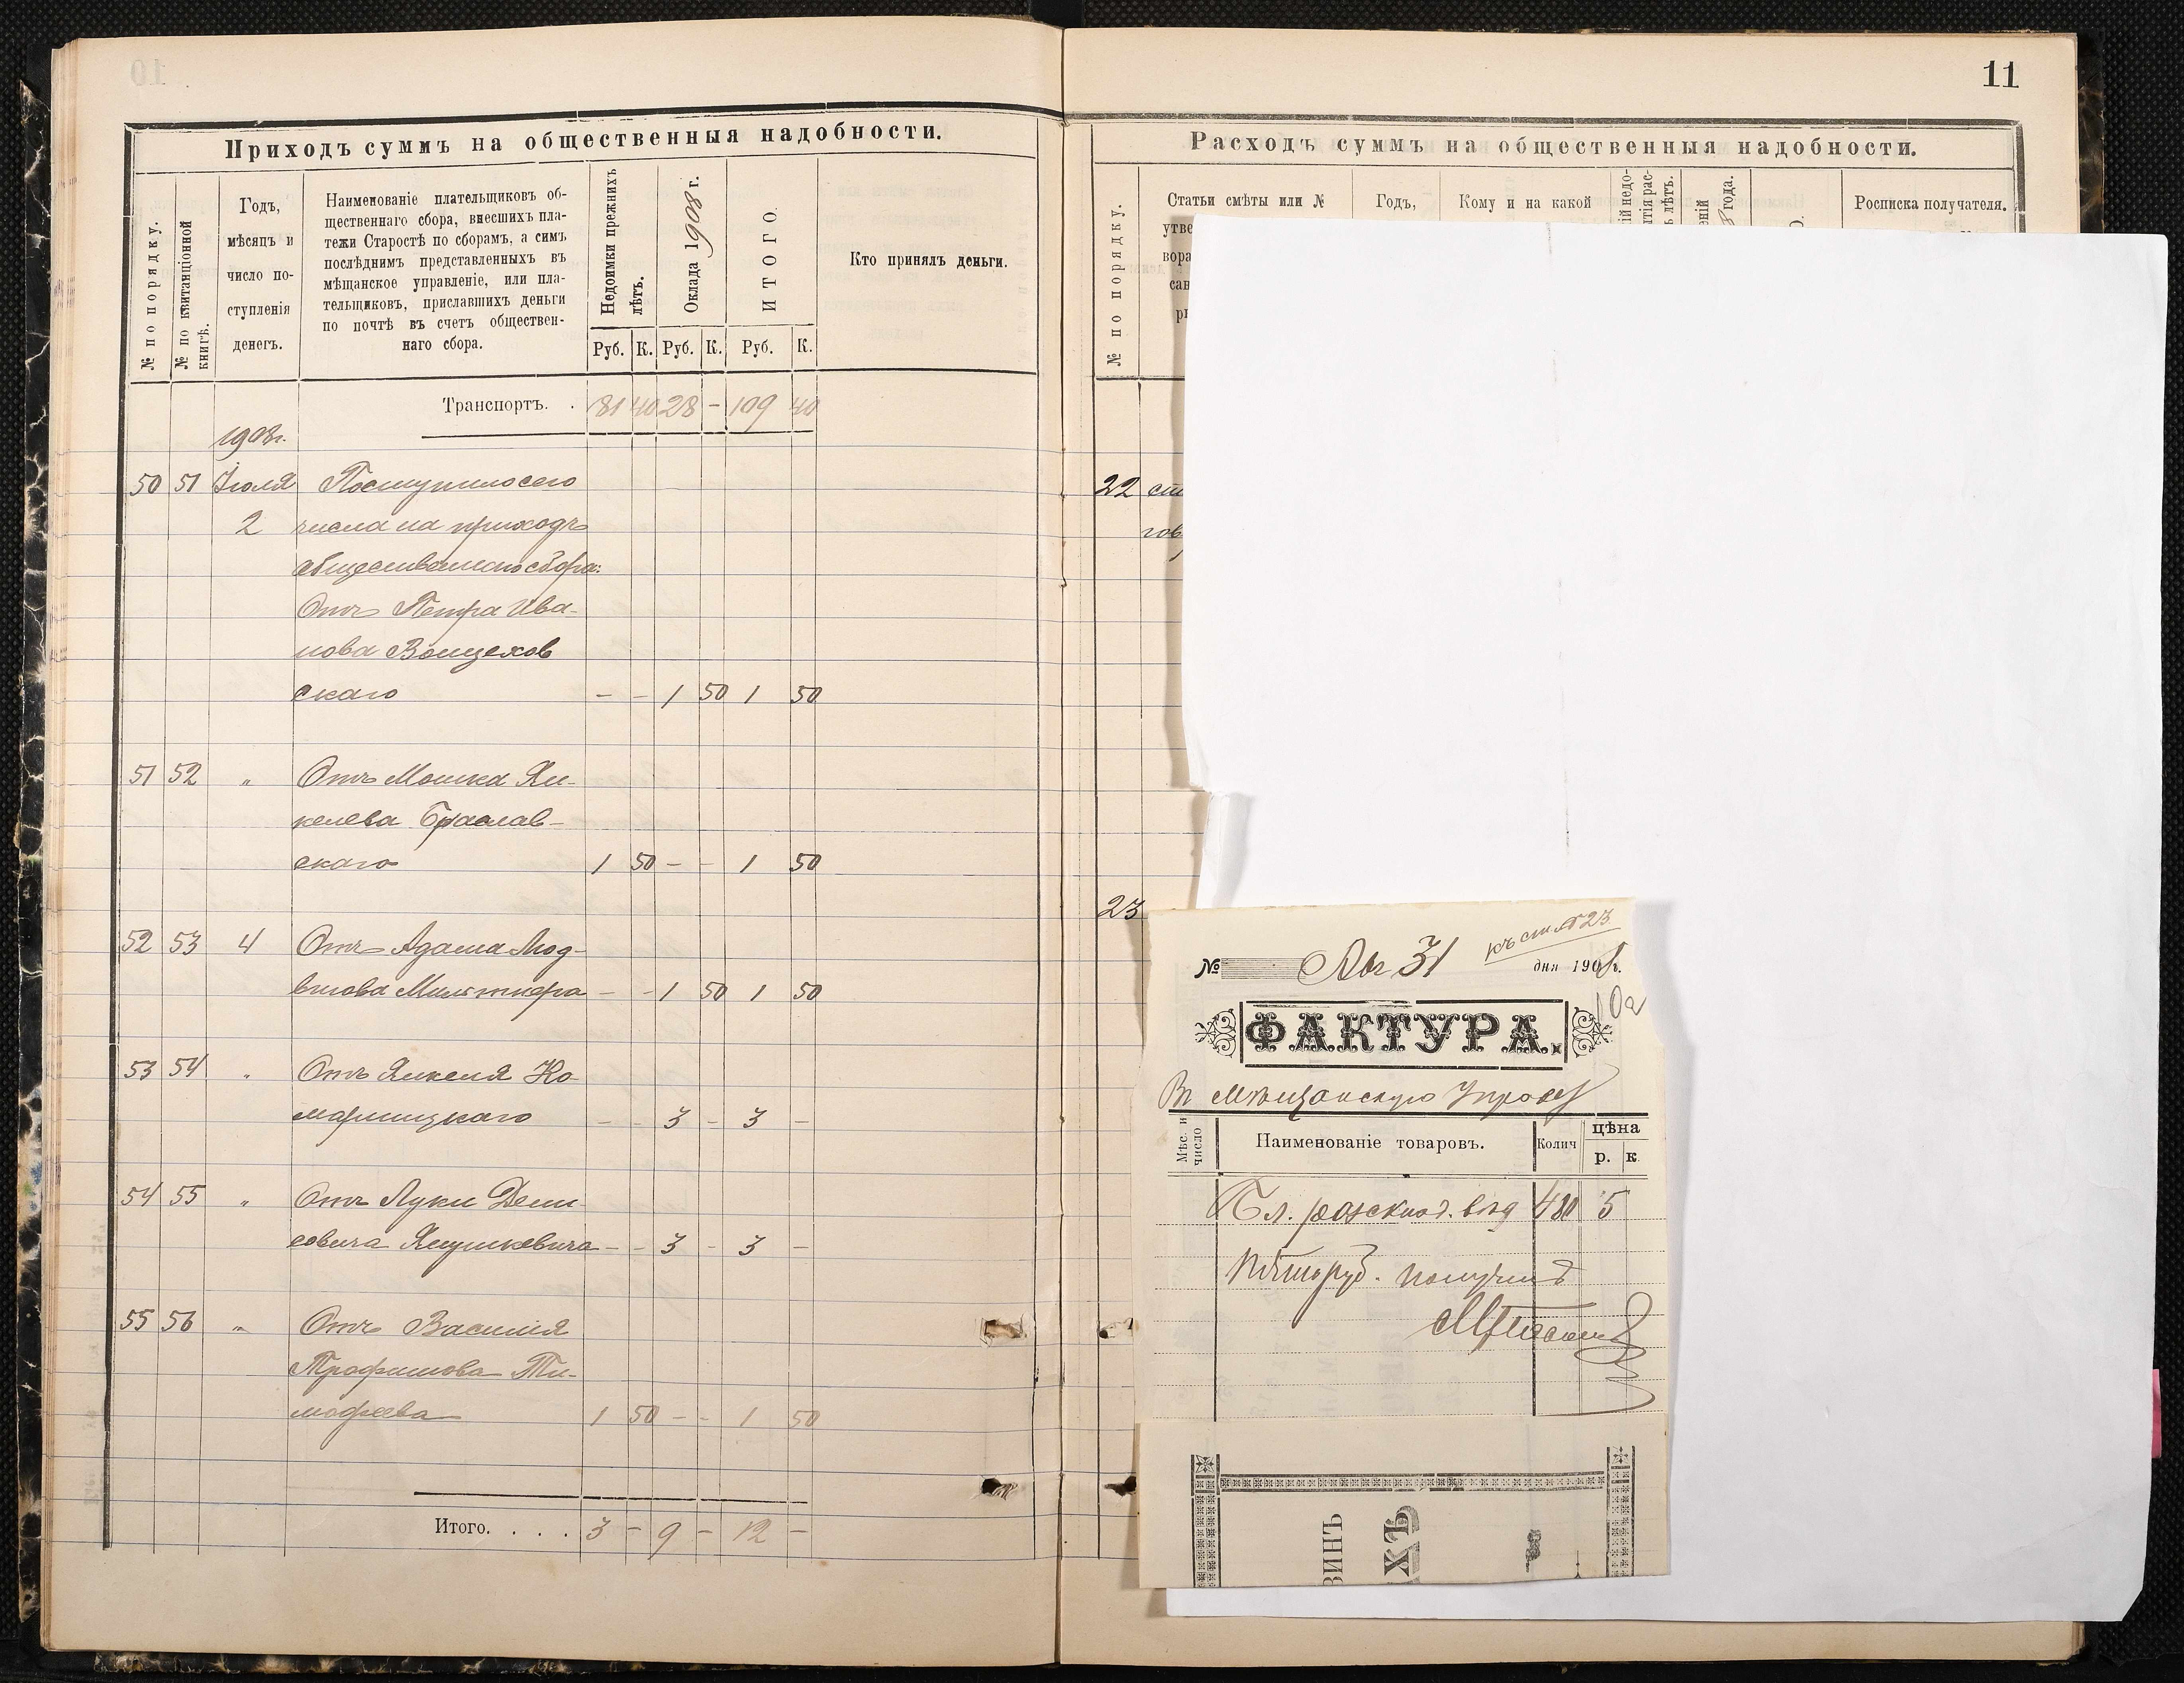 11
Приходъ суммъ на общественныя надобности.
№ по порядку.
№ по квитанціонной книгѣ.
Годъ,
мѣсяцъ и
число по-
ступленія
денегъ.
Наименованіе плательщиковъ об-
щественнаго сбора, внесшихъ пла-
тежи Старостѣ по сборамъ, а симъ
послѣднимъ представленныхъ въ
мѣщанское управленіе, или пла-
тельщиковъ, приславшихъ деньги
по почтѣ въ счетъ обществен-
наго сбора.
Недоимки прежнихъ лѣтъ.
Оклада 1908 г.
ИТОГО.
Кто принялъ деньги.
Руб. К. Руб. К. Руб. К.
Транспортъ. . 81 40 28 - 109 40
1908 г.
50 51 Іюля Поступило сего
2 числа на приходъ
общественнаго сбора:
Отъ Петра Ива-
нова Воицехов
скаго - - 1 50 1 50
51 52 " Отъ Мошка Ян-
келева Браслав-
скаго 1 50 - - 1 50
52 53 4 Отъ Адама Люд-
вигова - - 1 50 1 50
53 54 " Отъ Янкеля Ко-
марницкаго - - 3 - 3 -
54 55 " Отъ Луки Дени-
совича Янушкевича - - 3 - 3 -
55 56 " Отъ Василія
Трофимова Ти-
мофеева 1 50 - - 1 50
Итого. . . . 3 - 9 - 12 -
Расходъ суммъ на общественныя надобности.
№ по порядку.
Статьи смѣты или №
утве
вора
сан
Годъ,
Кому и на какой
ій недо-
ытія рас-
ъ лѣтъ.
еній
8 года.
Росписка получателя.
22 ст
гов
23
къ ст. № 23
№ Авг 31 дня 1908 г.
ФАКТУРА.
Въ Мѣщанскую Управу
Мѣс. и число
Наименованіе товаровъ.
Колич
цѣна
р. к.
Бл. 480 5
Пять руб. получилъ
ЗИНЪ
ХЪ